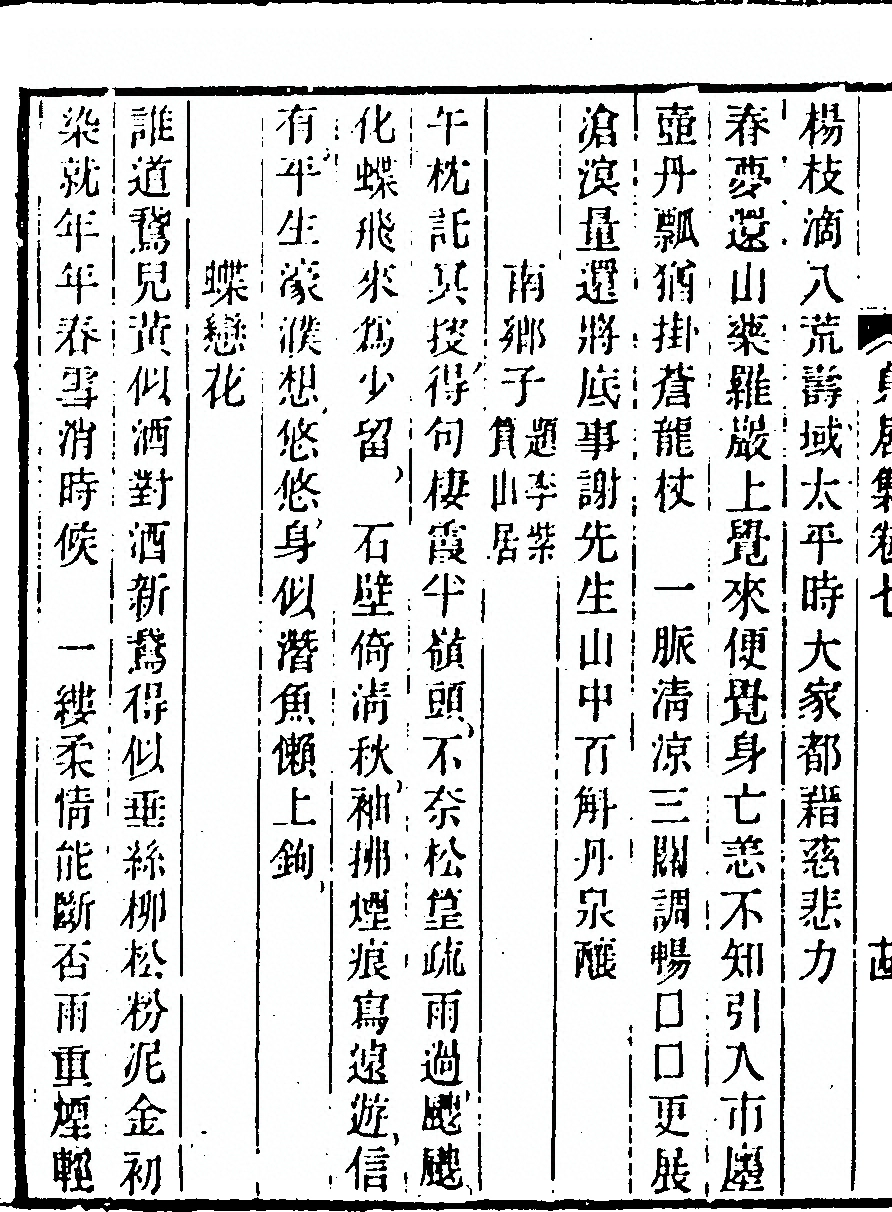 居集卷七
楊枝滴入荒壽域太平時大家都藉慈悲力
春夢還山藥羅巖上覺來便覺身亡恙不知引入市廛
壺丹瓢猶掛蒼龍杖　一脈清涼三關調暢□□更展
滄溟量還將底事謝先生山中百斛丹泉釀
南鄉子 題李紫篔山居
午枕託冥搜、得句棲霞半嶺頭、不奈松篁疏雨過、颼颼、
化蝶飛來爲少留、　石壁倚清秋、袖拂煙痕寫遠遊、信
有平生濠濮想、悠悠、身似潛魚懶上鉤、
蝶戀花
誰道鵞兒黃似酒對酒新鵞得似垂絲柳松粉泥金初
染就年年春雪消時候　一縷柔情能斷否雨重煙輕